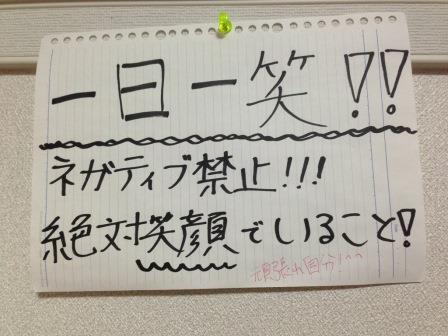 一日一笑!!
ネガティブ禁止!!!
絶対笑顔でいること!
頑張れ自分!^^